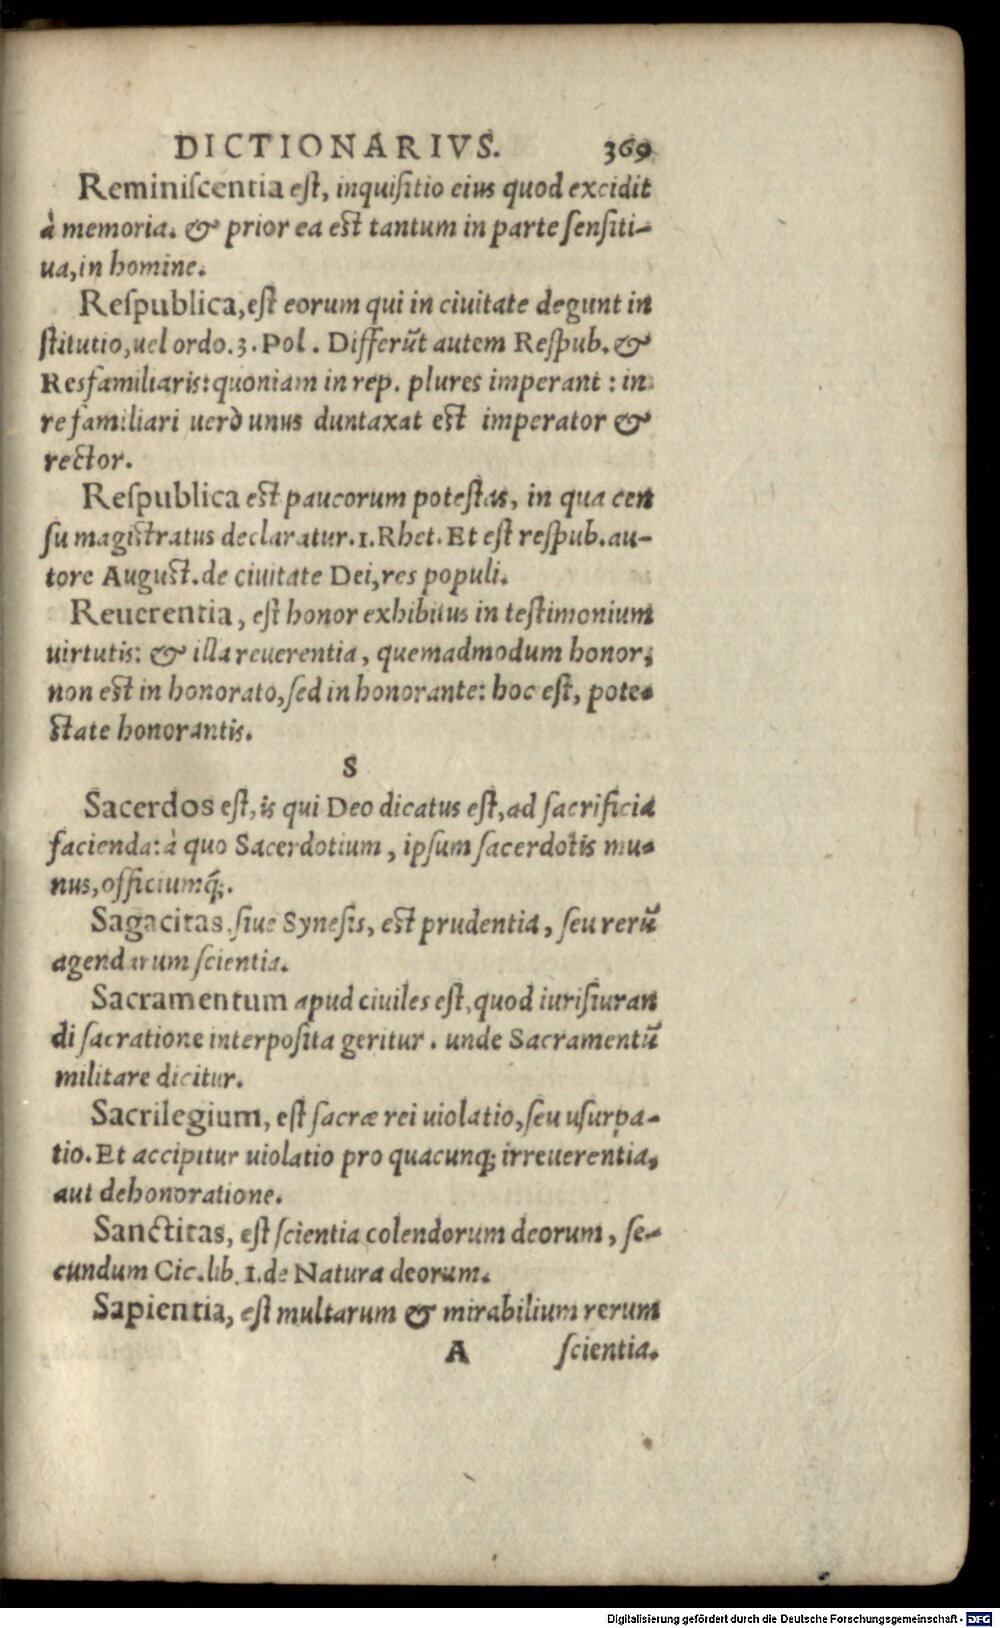 DICTIONARIVS. 369
Reminiſcentia eſt, inquiſitio eius quod excidit
à memoria. & prior ea eſt tantum in parte ſenſiti-
ua, in homine.
Reſpublica, eſt eorum qui in ciuitate degunt in
ſtitutio, uel ordo. 3. Pol. Differūt autem Reſpub. &
Resfamiliaris: quoniam in rep. plures imperant: in
re familiari uerò unus duntaxat eſt imperator &
rector.
Reſpublica eſt paucorum poteſtas, in qua cen
ſu magiſtratus declaratur. 1. Rhet. Et eſt reſpub. au-
tore Auguſt. de ciuitate Dei, res populi.
Reuerentia, eſt honor exhibitus in teſtimonium
uirtutis: & illa reuerentia, quemadmodum honor,
non eſt in honorato, ſed in honorante: hoc eſt, pote-
ſtate honorantis.
S
Sacerdos eſt, is qui Deo dicatus eſt, ad ſacrificia
facienda: à quo Sacerdotium, ipſum ſacerdotis mu-
nus, officiumq́;.
Sagacitas, ſiue Syneſis, eſt prudentia, ſeu rerū
agendarum ſcientia.
Sacramentum apud ciuiles eſt, quod iuriſiuran
di ſacratione interpoſita geritur. unde Sacramentū
militare dicitur.
Sacrilegium, eſt ſacræ rei uiolatio, ſeu uſurpa-
tio. Et accipitur uiolatio pro quacunq; irreuerentia,
aut dehonoratione.
Sanctitas, eſt ſcientia colendorum deorum, ſe-
cundum Cic. lib. 1. de Natura deorum.
Sapientia, eſt multarum & mirabilium rerum
A ſcientia.
Digitalisierung gefördert durch die Deutsche Forschungsgemeinschaft - DFG